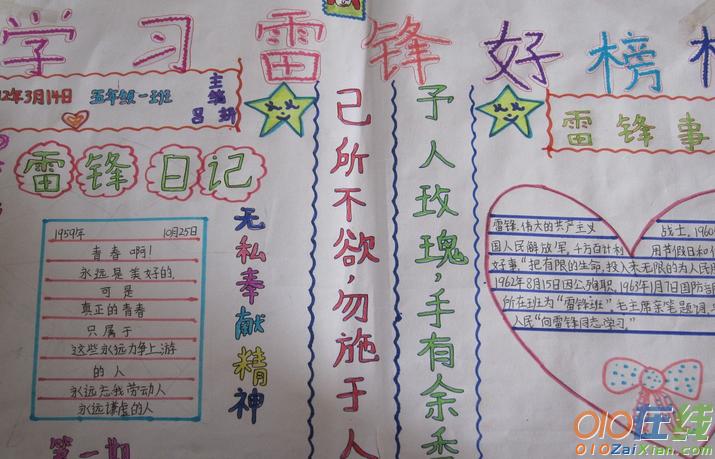 学习雷锋好榜
2年3月14日 五年级一班
主编
吕
雷锋日记
1959年 10月25日
青春啊!
永远是美好的
可是
真正的青春
只属于
这些永远力争上游
的人
永远忘我劳动人
永远谦虚的人
第一期
无私奉献精神
己所不欲,勿施于人
予人玫瑰,手有余香
雷锋事
雷锋,伟大的共产主义战士,1960
国人民解放军,千方百计利用节假日和
好事。"把有限的生命,投入未无限的为人民
1962年8月15日因公殉职,1963年1月7日国防部
所在班为"雷锋班",毛主席亲笔题词
人民"向雷锋同志学习。"
010在线
010ZaiXian.com